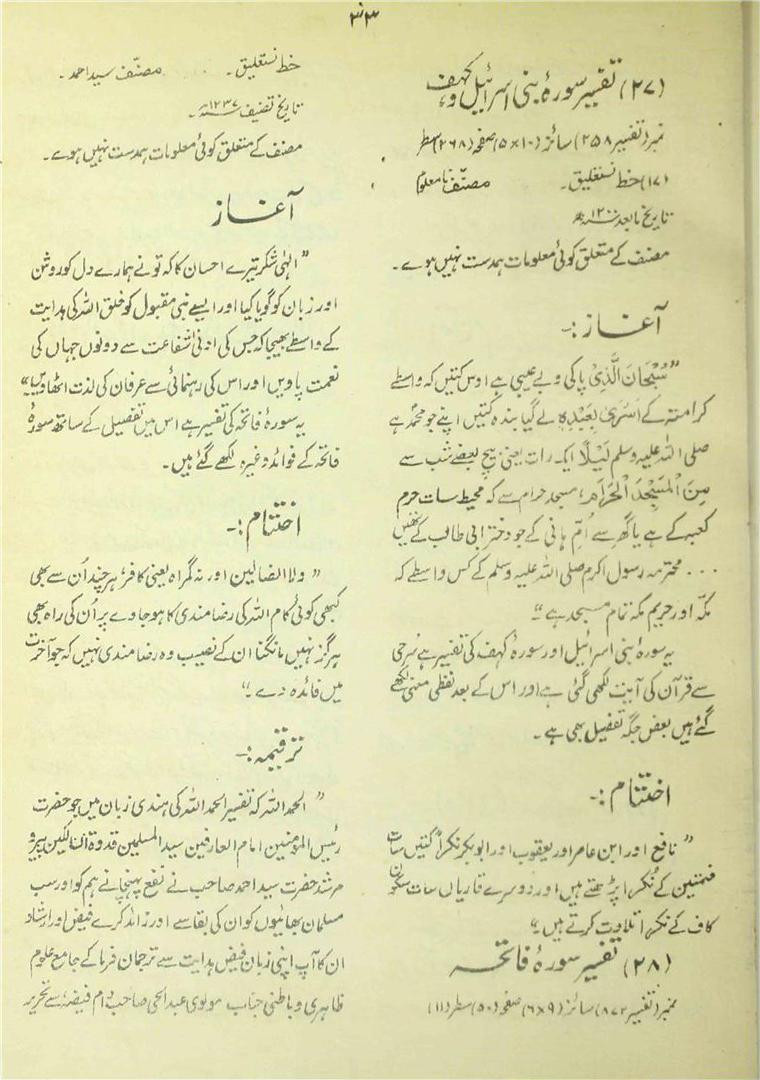 ۳۳
(۲۷) تفسیر سورۂ بنی اسرائیل و کہف
نمبر (تفسیر ۲۵۸) سائز (۱۰×۵) صفحہ (۲۶۸) سطر
(۱۷) خط نستعلیق۔ مصنّف نامعلوم
تاریخ مابعد ۱۲۰۰ھ
مصنف کے متعلق کوئی معلومات ہمدست نہیں ہوے۔
آغاز :۔
”سُبْحَانَ الَّذِیْ پاکی و بے عیبی ہے اوس کتیں کہ واسطے
کرامتہ کے اَسْریٰ بِعَبْدِہٖ لے گیا بندہ کتیں اپنے جو محمدؐ ہے
صلی اللہ علیہ وسلم لَیْلًا ایک رات یعنی بیچ بعضے شب سے
مِنَ الْمَسْجِدِ الْحَرَامِ، مسجد حرام سے کہ محیط سات حرم
کعبہ کے ہے یا گھر سے اُمّ ہانی کے جو دختر ابی طالب کے تھیں
... محترمہ رسول اکرم صلی اللہ علیہ وسلم کے کس واسطے کہ
مکہ اور حریم مکہ تمام مسجد ہے“۔
یہ سورۂ بنی اسرائیل اور سورۂ کہف کی تفسیر ہے سُرخی
سے قرآن کی آیت لکھی گئی ہے اور اس کے بعد لفظی معنی لکھے
گئے ہیں بعض جگہ تفصیل بھی ہے۔
اختتام :۔
”نافع اور ابن عامر اور یعقوب اور ابوبکر نکراً کتیں سات
ضمتین کے نُکُرا پڑھتے ہیں اور دوسرے قاریاں سات سکون
کاف کے نکرا تلاوت کرتے ہیں۔“
(۲۸) تفسیر سورۂ فاتحہ
نمبر (تفسیر ۸۷۲) سائز (۹×۶) صفحہ (۵۰) سطر (۱۱)
خط نستعلیق۔ مصنّف سید احمد۔
تاریخ تصنیف ۱۲۳۷ھ۔
مصنف کے متعلق کوئی معلومات ہمدست نہیں ہوے۔
آغاز
”الہٰی شکر تیرے احسان کا کہ تو نے ہمارے دل کو روشن
اور زبان کو گویا کیا اور ایسے نبی مقبول کو خلق اللہ کی ہدایت
کے واسطے بھیجا کہ جس کی ادنیٰ شفاعت سے دونوں جہاں کی
نعمت پاویں اور اس کی رہنمائی سے عرفان کی لذت اٹھاویں“
یہ سورۂ فاتحہ کی تفسیر ہے اس میں تفصیل کے ساتھ سورۂ
فاتحہ کے فوائد وغیرہ لکھے گئے ہیں۔
اختتام :۔
”ولا الضالین اور نہ گمراہ یعنی کافر، ہر چند اُن سے بھی
کبھی کوئی کام اللہ کی رضامندی کا ہو جاوے پر اُن کی راہ بھی
ہرگز نہیں مانگنا ان کے نصیب وہ رضامندی نہیں کہ جو آخرت
میں فائدہ دے۔“
ترقیمہ :۔
”الحمد اللہ کہ تفسیر الحمد اللہ کی ہندی زبان میں جو حضرت
رئیس المومنین امام العارفین سید المسلمین قدوۃ السالکین پیرو
مرشد حضرت سید احمد صاحب نے نفع پہنچانے ہم کو اور سب
مسلمان بھائیوں کو ان کی بقا سے اور زائد کرے فیض اور ارشاد
ان کا آپ اپنی زبان فیض ہدایت سے ترجمان فرما کے جامع علوم
ظاہری و باطنی جناب مولوی عبدالحی صاحب دام فیضہٗ سے تحریر